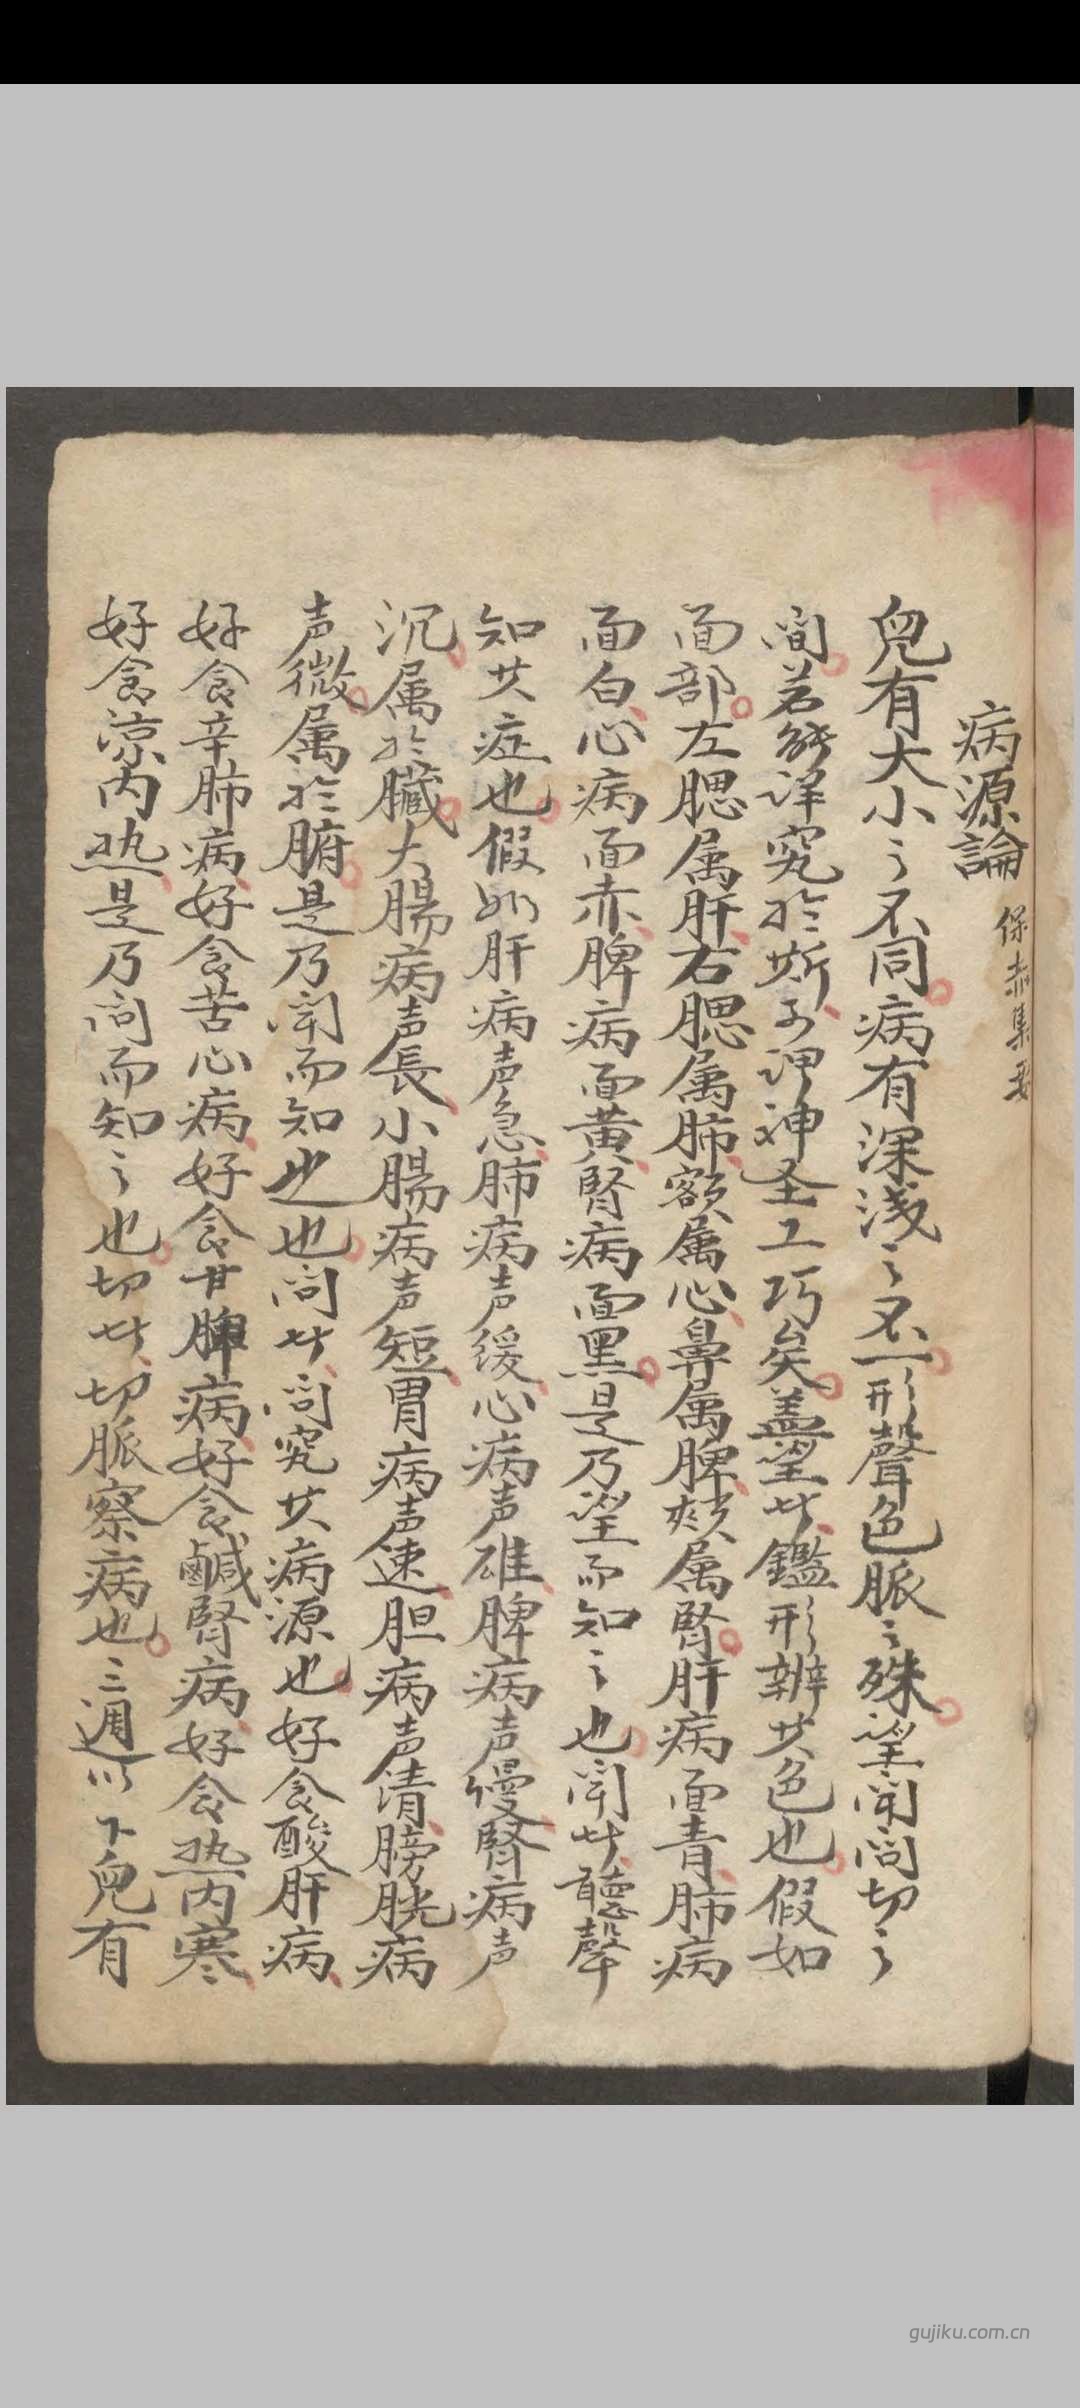 病源論 保赤集要
兒有大小之不同病有深浅之不一形聲色脈之殊望闻问切之
间若能详究於斯可谓神圣工巧矣盖望者鑑形辨其色也假如
面部左腮属肝右腮属肺额属心鼻属脾颏属腎肝病面青肺病
面白心病面赤脾病面黄腎病面黑是乃望而知之也闻者聽聲
知其症也假如肝病声急肺病声缓心病声雄脾病声慢腎病声
沉属於臓大腸病声長小腸病声短胃病声速胆病声清膀胱病
声微属於腑是乃闻而知之也问者问究其病源也好食酸肝病
好食辛肺病好食苦心病好食甘脾病好食鹹腎病好食热内寒
好食凉内热是乃问而知之也切者切脈察病也三週以下兒有
gujiku.com.cn